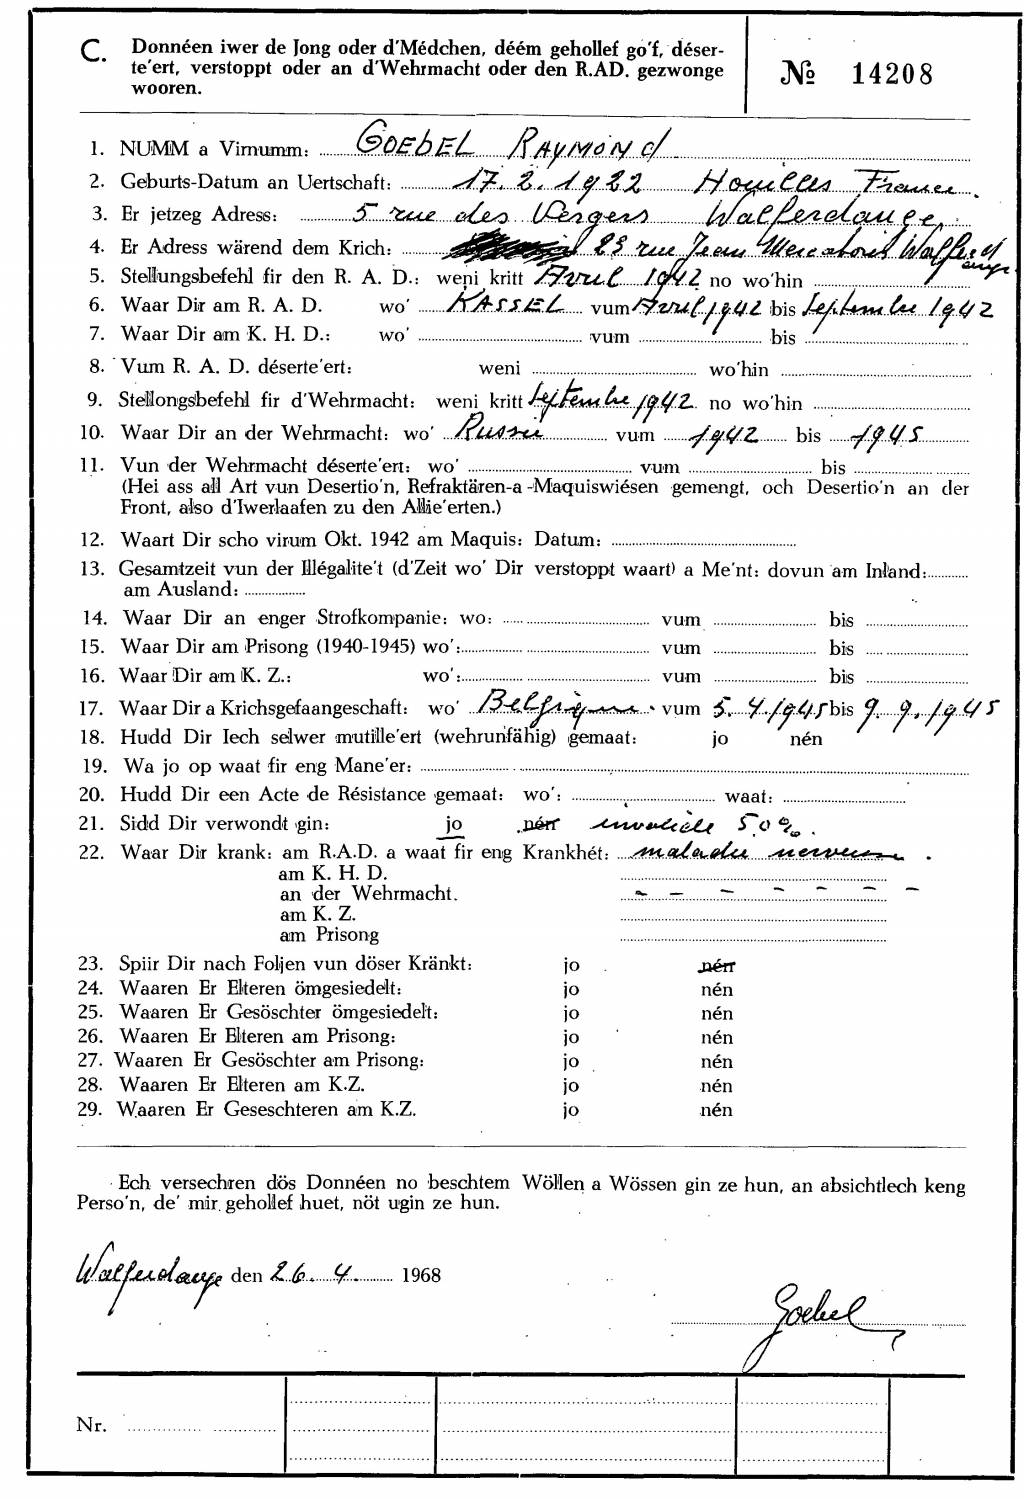 C. Donnéen iwer de Jong oder d'Médchen, déém gehollef go'f, déser-
te'ert, verstoppt oder an d'Wehrmacht oder den R.AD. gezwonge
wooren.
№ 14208
1. NUMM a Virnumm: GOEBEL RAYMOND
2. Geburts-Datum an Uertschaft: 17.2.1922 Houilles France.
3. Er jetzeg Adress: 5 rue des Vergers Walferdange
4. Er Adress wärend dem Krich: 23 rue Jean Mercatoris Walferdange
5. Stellungsbefehl fir den R. A. D.: weni kritt Avril 1942 no wo'hin
6. Waar Dir am R. A. D. wo' KASSEL vum Avril 1942 bis Septembre 1942
7. Waar Dir am K. H. D.: wo' vum bis
8. Vum R. A. D. déserte'ert: weni wo'hin
9. Stellongsbefehl fir d'Wehrmacht: weni kritt Septembre 1942 no wo'hin
10. Waar Dir an der Wehrmacht: wo' Russie vum 1942 bis 1945
11. Vun der Wehrmacht déserte'ert: wo' vum bis
(Hei ass all Art vun Desertio'n, Refraktären-a -Maquiswiésen gemengt, och Desertio'n an der
Front, also d'Iwerlaafen zu den Allie'erten.)
12. Waart Dir scho virum Okt. 1942 am Maquis: Datum:
13. Gesamtzeit vun der Illégalite't (d'Zeit wo' Dir verstoppt waart) a Me'nt: dovun am Inland:
am Ausland:
14. Waar Dir an enger Strofkompanie: wo: vum bis
15. Waar Dir am Prisong (1940-1945) wo': vum bis
16. Waar Dir am K. Z.: wo': vum bis
17. Waar Dir a Krichsgefaangeschaft: wo' Belgique vum 5.4.1945 bis 9.9.1945
18. Hudd Dir Iech selwer mutille'ert (wehrunfähig) gemaat: jo nén
19. Wa jo op waat fir eng Mane'er:
20. Hudd Dir een Acte de Résistance gemaat: wo': waat:
21. Sidd Dir verwondt gin: jo nén invalide 50%.
22. Waar Dir krank: am R.A.D. a waat fir eng Krankhét: maladie nerveuse.
am K. H. D.
an der Wehrmacht. - - - - - - -
am K. Z.
am Prisong
23. Spiir Dir nach Foljen vun döser Kränkt: jo nén
24. Waaren Er Elteren ömgesiedelt: jo nén
25. Waaren Er Gesöschter ömgesiedelt: jo nén
26. Waaren Er Elteren am Prisong: jo nén
27. Waaren Er Gesöschter am Prisong: jo nén
28. Waaren Er Elteren am K.Z. jo nén
29. Waaren Er Geseschteren am K.Z. jo nén
Ech versechren dös Donnéen no beschtem Wöllen a Wössen gin ze hun, an absichtlech keng
Perso'n, de' mir gehollef huet, nöt ugin ze hun.
Walferdange den 26.4. 1968
Goebel
Nr.